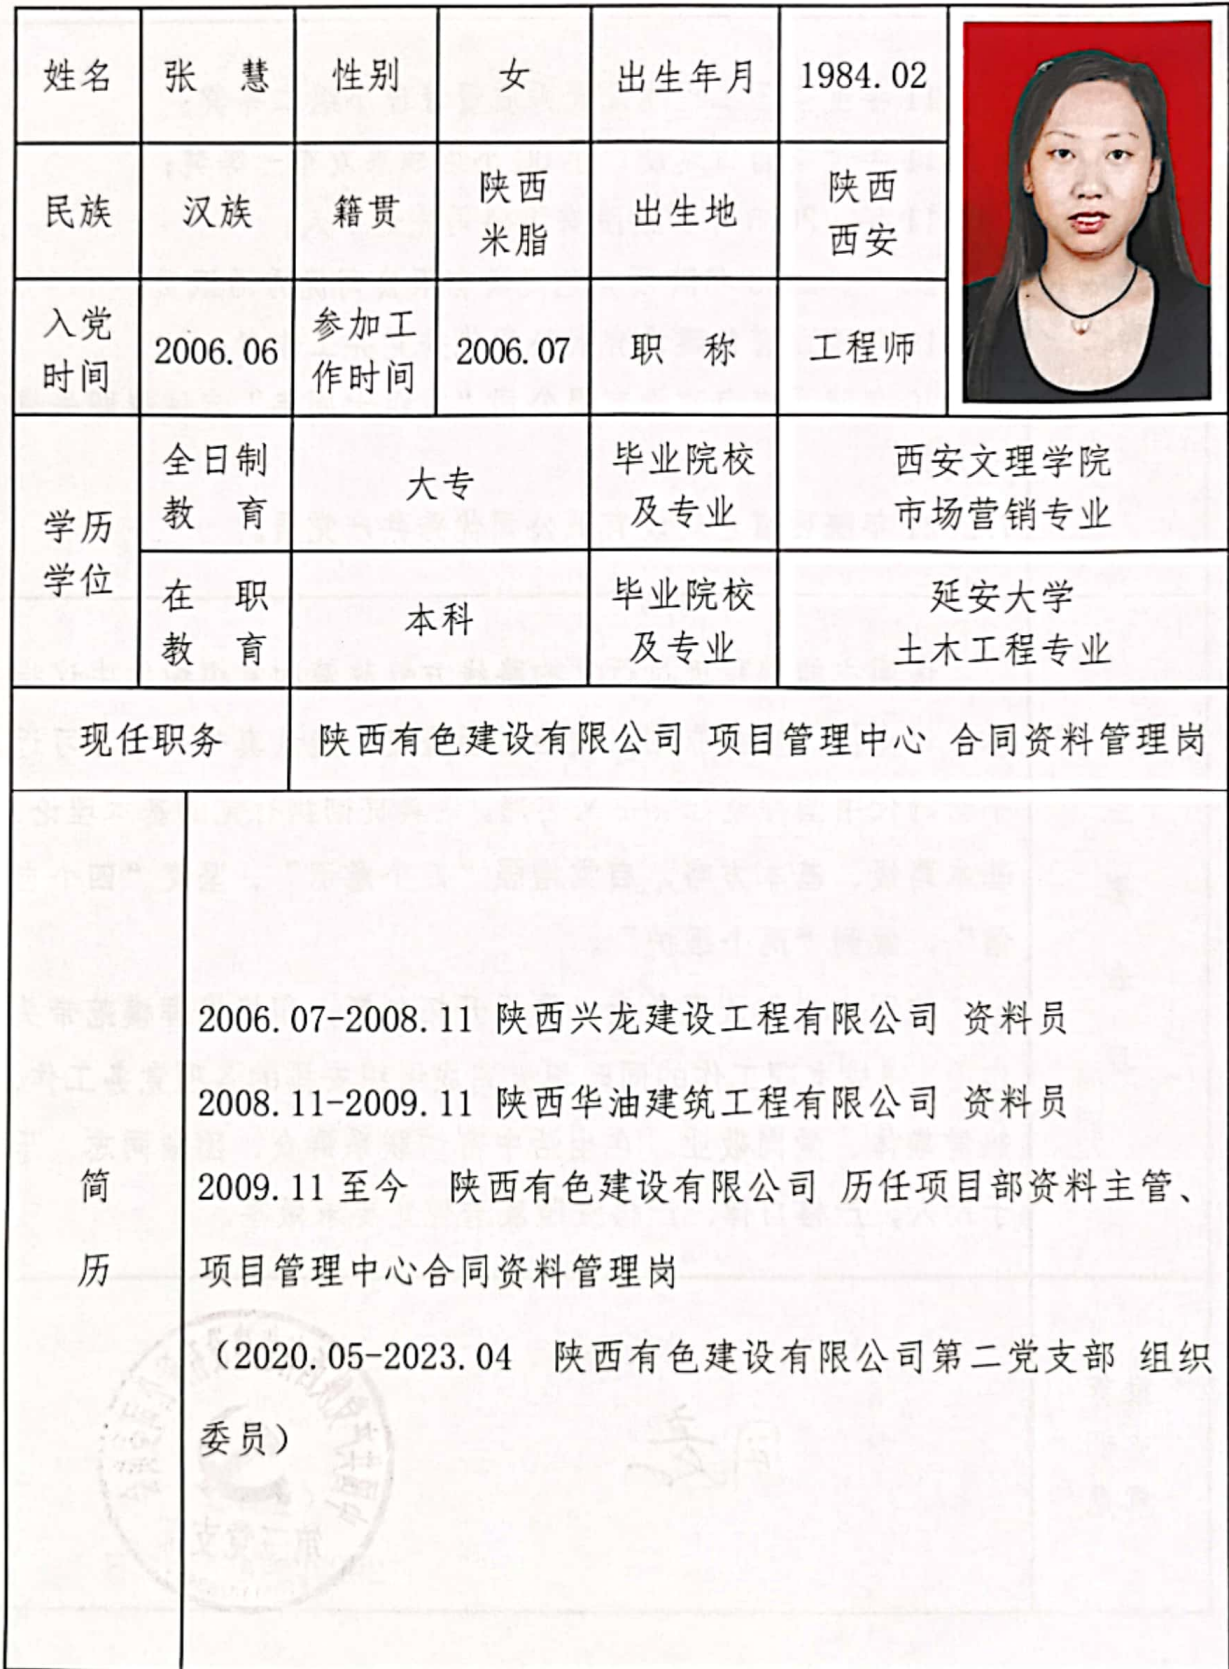 姓名 张 慧 性别 女 出生年月 1984.02
民族 汉族 籍贯 陕西 米脂 出生地 陕西 西安
入党 时间 2006.06 参加工 作时间 2006.07 职 称 工程师
学历 学位
全日制 教 育 大专 毕业院校 及专业 西安文理学院 市场营销专业
在 职 教 育 本科 毕业院校 及专业 延安大学 土木工程专业
现任职务 陕西有色建设有限公司 项目管理中心 合同资料管理岗
简 历
2006.07-2008.11 陕西兴龙建设工程有限公司 资料员
2008.11-2009.11 陕西华油建筑工程有限公司 资料员
2009.11 至今 陕西有色建设有限公司 历任项目部资料主管、
项目管理中心合同资料管理岗
（2020.05-2023.04 陕西有色建设有限公司第二党支部 组织
委员）